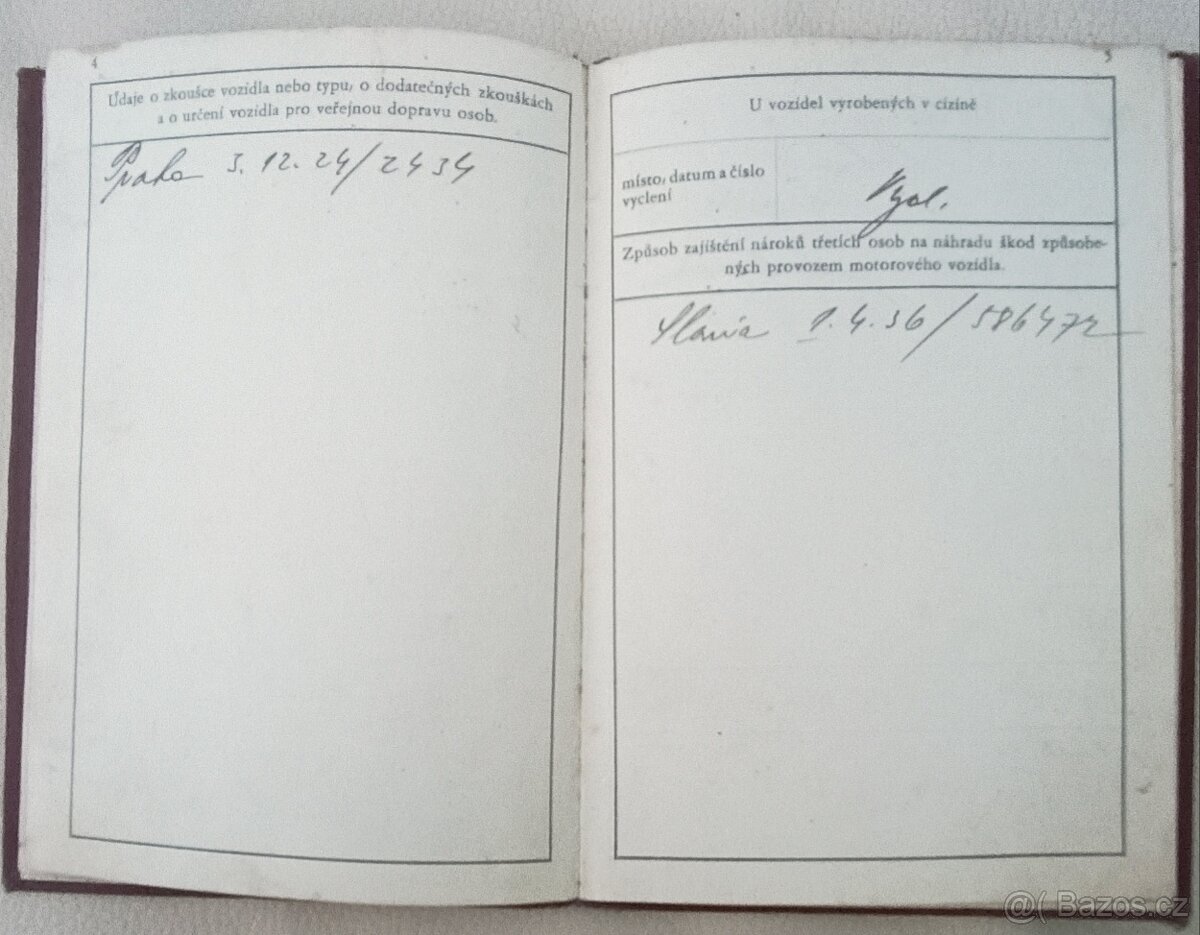 4
Údaje o zkoušce vozidla nebo typu, o dodatečných zkouškách
a o určení vozidla pro veřejnou dopravu osob.
Praha 3. 12. 24/2434
5
U vozidel vyrobených v cizině
místo, datum a číslo
vyclení
Způsob zajištění nároků třetích osob na náhradu škod způsobe-
ných provozem motorového vozidla.
Slavia 1. 4. 36/586472
@( Bazos.cz